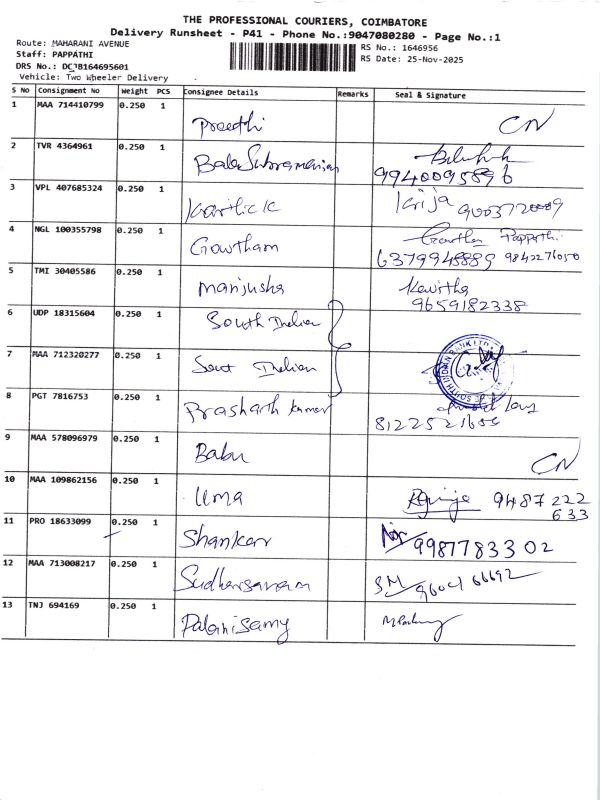 THE PROFESSIONAL COURIERS, COIMBATORE
Delivery Runsheet - P41 - Phone No.:9047080280 - Page No.:1
Route: MAHARANI AVENUE
Staff: PAPPATHI
DRS No.: DCJB164695601
Vehicle: Two Wheeler Delivery
RS No.: 1646956
RS Date: 25-Nov-2025
S No Consignment No Weight PCS Consignee Details Remarks Seal & Signature
1 MAA 714410799 0.250 1 Preethi CN
2 TVR 4364961 0.250 1 BalaSubramanian 9940095896
3 VPL 407685324 0.250 1 Karthick Krija
4 NGL 100355798 0.250 1 Gowtham Gowtham Pappathi
6379948889 9842276050
5 TMI 30405586 0.250 1 Manjusha Kavitha
9659182338
6 UDP 18315604 0.250 1 South Indian
7 MAA 712320277 0.250 1 Sout Indian
8 PGT 7816753 0.250 1 Prasharth Kumar
9 MAA 578096979 0.250 1 Babu CN
10 MAA 109862156 0.250 1 Uma 9487 222
633
11 PRO 18633099 0.250 1 Shankar 9987783302
12 MAA 713008217 0.250 1 Sudharsanam SM
13 TNJ 694169 0.250 1 Palanisamy